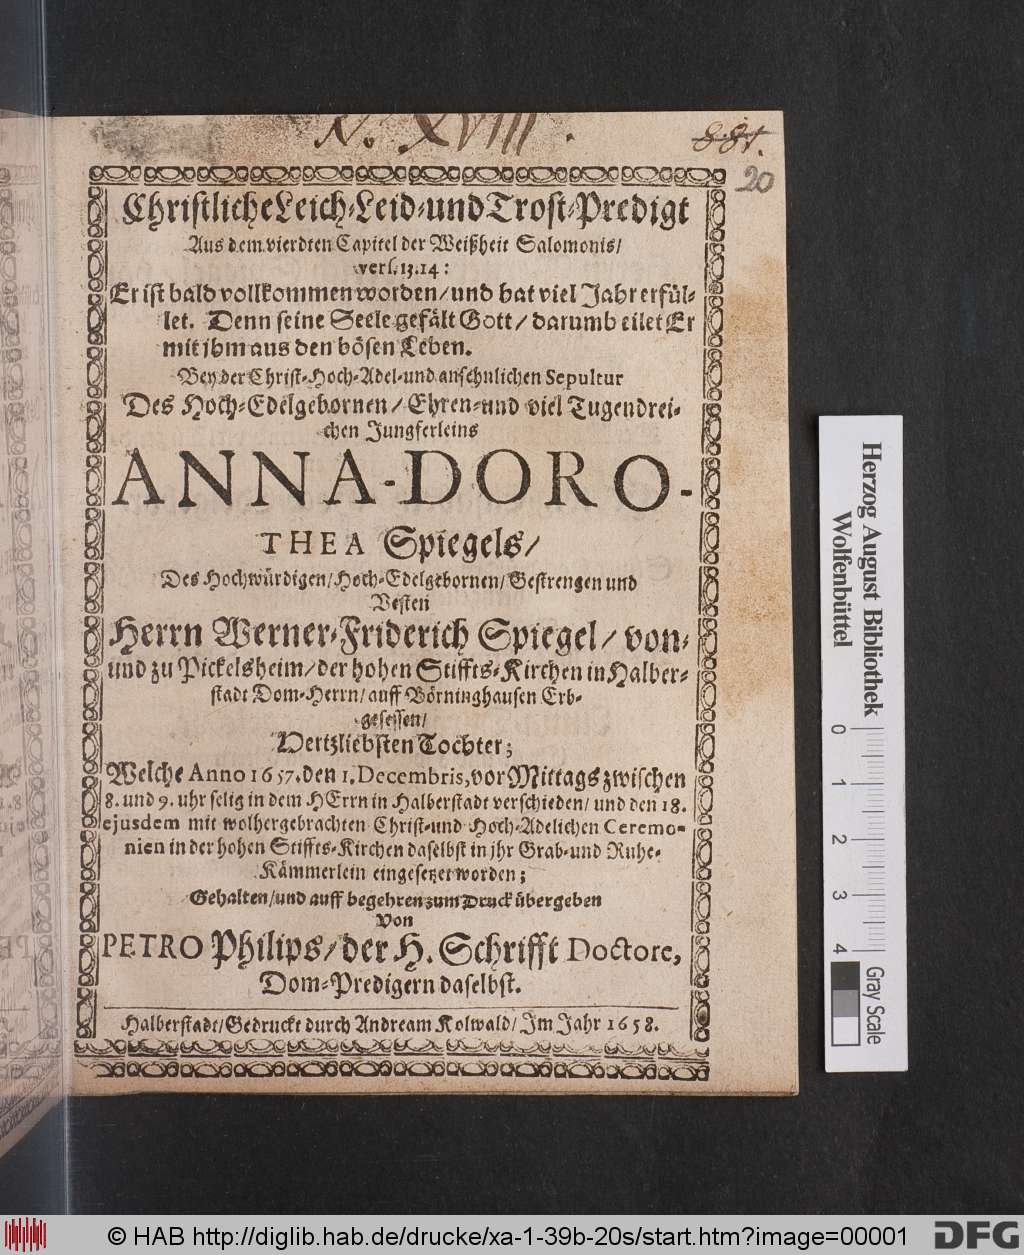 N. XVIII.
881.
20
Christliche Leich-Leid-und Trost-Predigt
Aus dem vierdten Capitel der Weißheit Salomonis/
vers. 13. 14:
Er ist bald vollkommen worden/und hat viel Jahr erfül-
let. Denn seine Seele gefält Gott/darumb eilet Er
mit jhm aus den bösen Leben.
Bey der Christ-Hoch-Adel-und ansehnlichen Sepultur
Des Hoch-Edelgebornen/Ehren-und viel Tugendrei-
chen Jungferleins
ANNA-DORO-
THEA Spiegels/
Des Hochwürdigen/Hoch-Edelgebornen/Gestrengen und
Vesten
Herrn Werner-Friderich Spiegel/von-
und zu Pickelsheim/der hohen Stiffts-Kirchen in Halber-
stadt Dom-Herrn/auff Börninghausen Erb-
gesessen/
Hertzliebsten Tochter;
Welche Anno 1657. den 1. Decembris, vor Mittag zwischen
8. und 9. uhr selig in dem HErrn in Halberstadt verschieden/und den 18.
ejusdem mit wolhergebrachten Christ-und Hoch-Adelichen Ceremo-
nien in der hohen Stiffts-Kirchen daselbst in jhr Grab-und Ruhe-
Kämmerlein eingesetzet worden;
Gehalten/und auff begehren zum Druck übergeben
Von
PETRO Philips/der H. Schrifft Doctore,
Dom-Predigern daselbst.
Halberstadt/Gedruckt durch Andream Kolwald/Im Jahr 1658.
Herzog August Bibliothek
Wolfenbüttel
0 1 2 3 4
Gray Scale
© HAB http://diglib.hab.de/drucke/xa-1-39b-20s/start.htm?image=00001
DFG